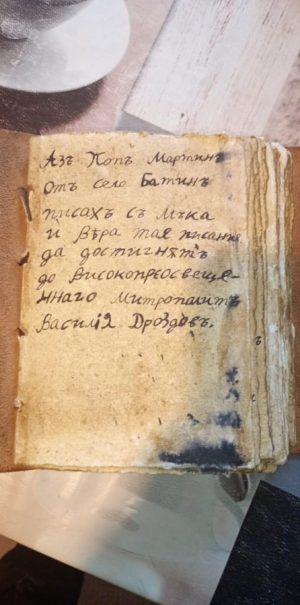 Азъ Попъ Мартинъ
отъ село Батинъ
писахъ съ мѫка
и вѣра тае писание
да достигнѫтъ
до високопреосвеще-
ннаго Митрополитъ
Василія Дроздовъ.
ъ